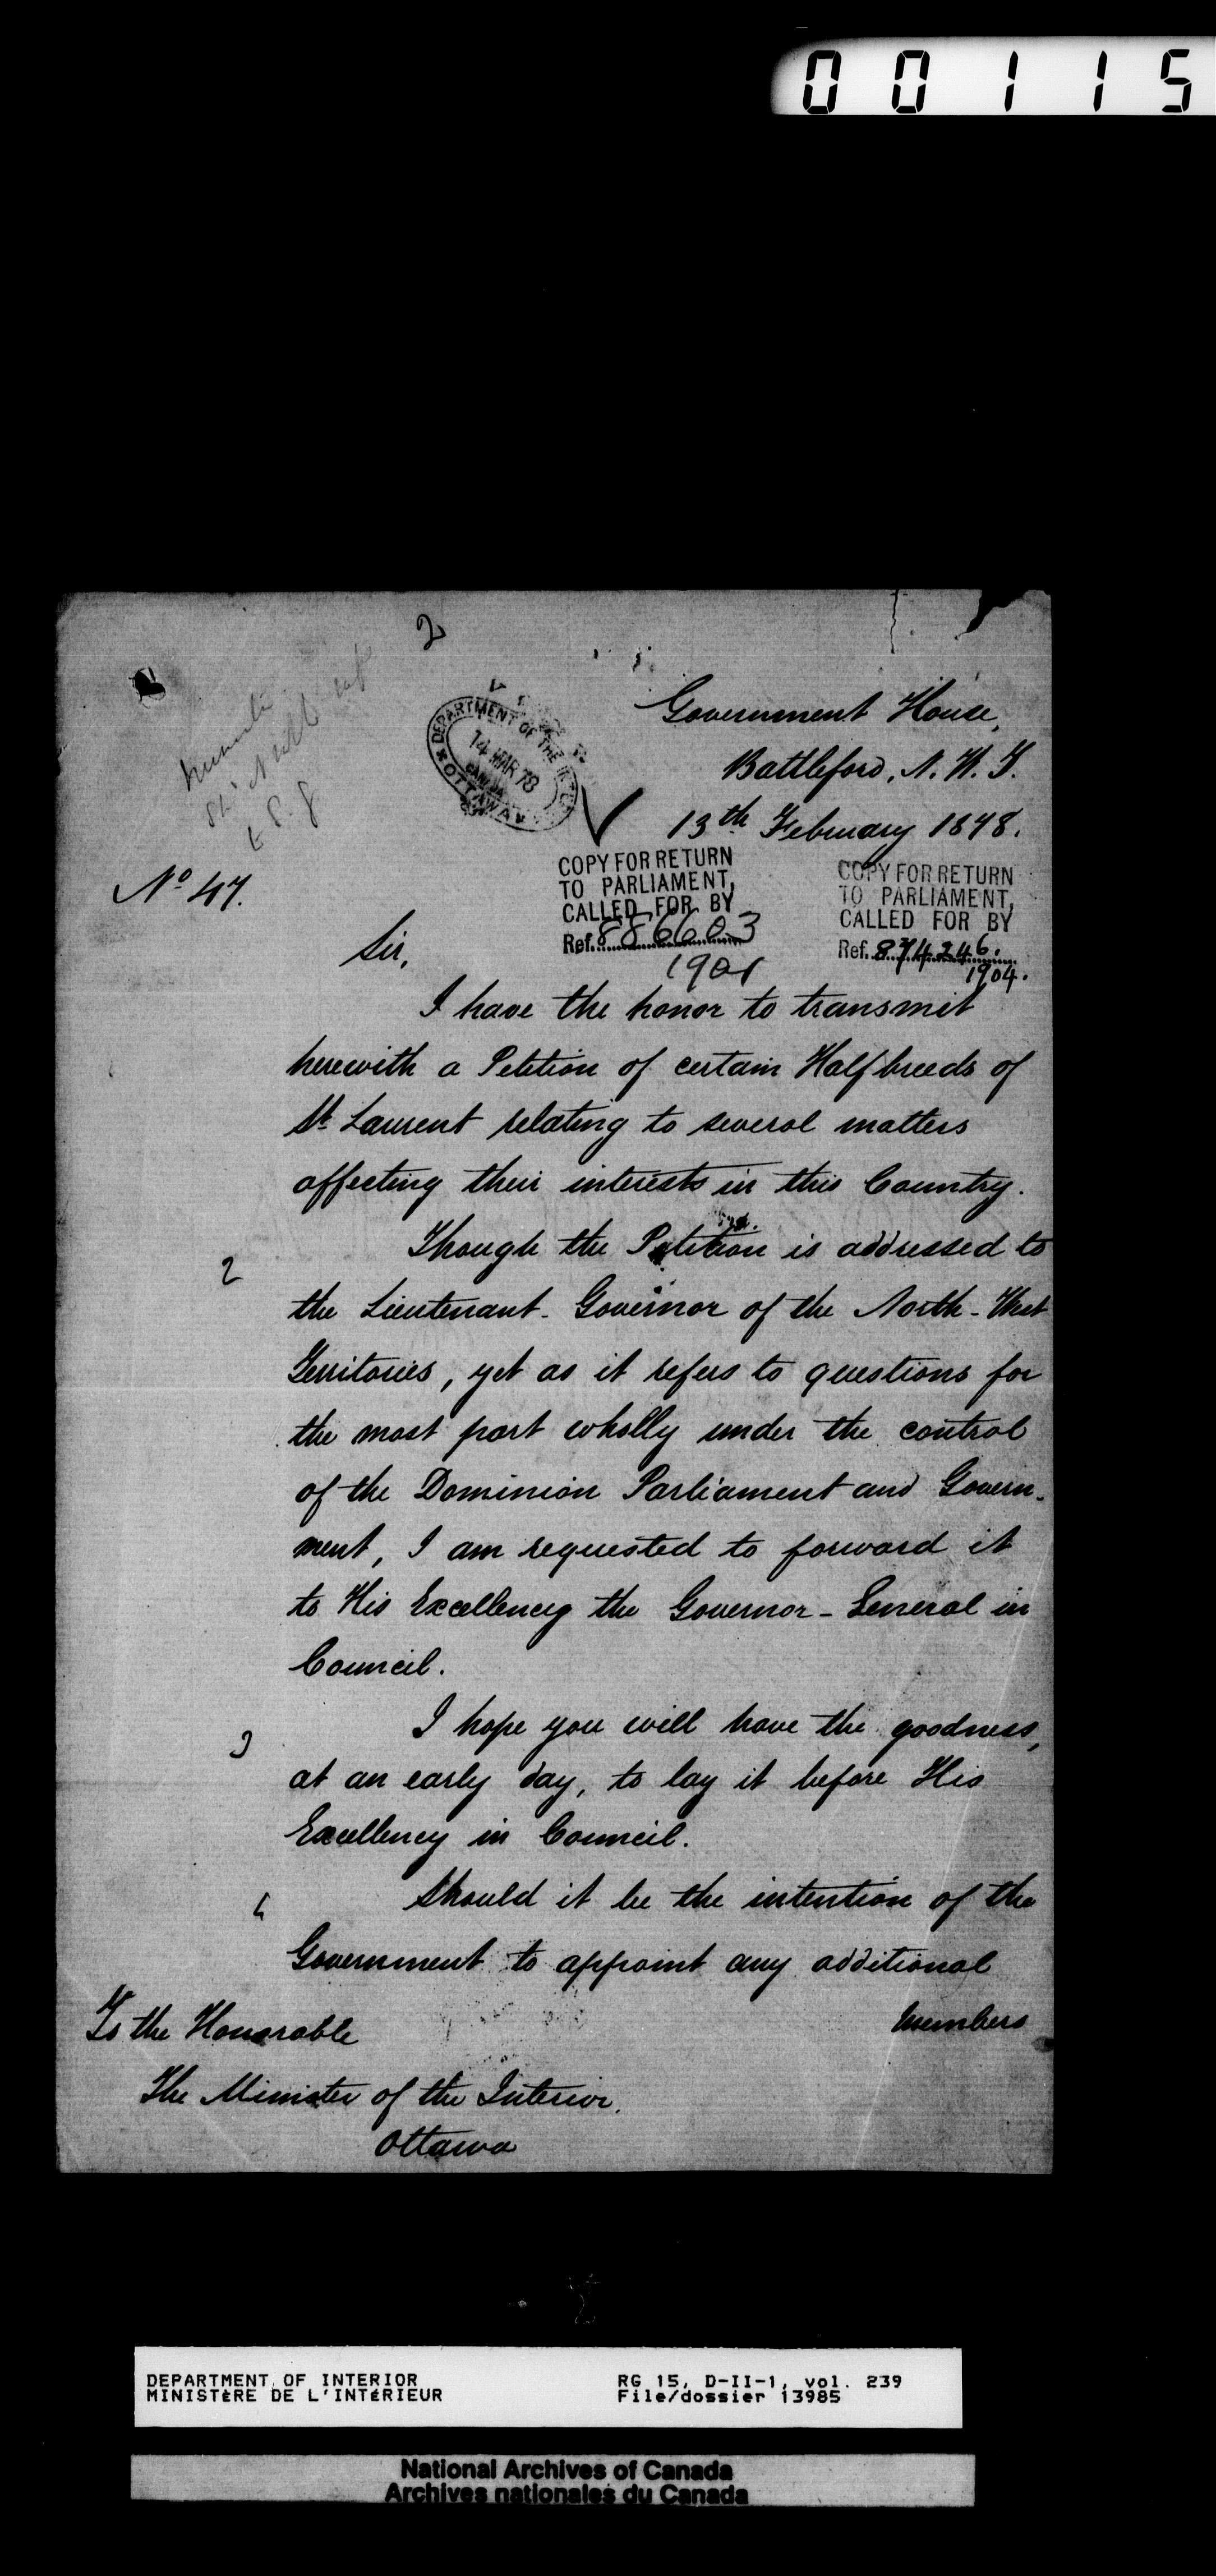 00115
2
Government House,
Battleford, N. W. T.
13th February 1878.
DEPARTMENT OF THE
14 MAR 78
CANADA
OTTAWA
No 47.
COPY FOR RETURN
TO PARLIAMENT,
CALLED FOR BY
Ref. 886603
1901
COPY FOR RETURN
TO PARLIAMENT,
CALLED FOR BY
Ref. 874246.
1904.
Sir,
I have the honor to transmit
herewith a Petition of certain Halfbreeds of
St Laurent relating to several matters
affecting their interests in this Country.
2 Though the Petition is addressed to
the Lieutenant-Governor of the North-West
Territories, yet as it refers to questions for
the most part wholly under the control
of the Dominion Parliament and Govern-
ment, I am requested to forward it
to His Excellency the Governor-General in
Council.
3 I hope you will have the goodness,
at an early day, to lay it before His
Excellency in Council.
4 Should it be the intention of the
Government to appoint any additional
members
To the Honorable
The Minister of the Interior.
Ottawa
DEPARTMENT OF INTERIOR
MINISTÈRE DE L'INTÉRIEUR
RG 15, D-II-1, vol. 239
File/dossier 13985
National Archives of Canada
Archives nationales du Canada